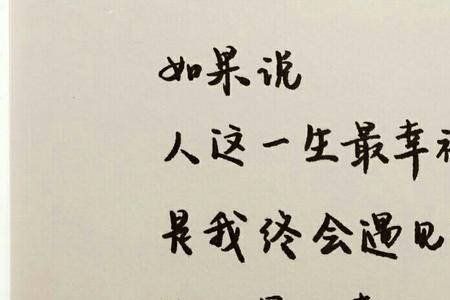 如果说
人这一生最幸
是我终会遇见